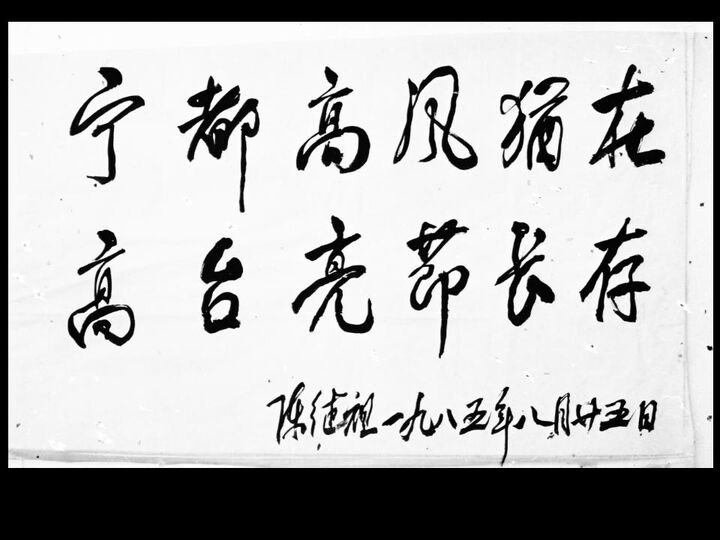 宁都高风猶在
高台亮節长存
陈继祖一九八五年八月廿五日